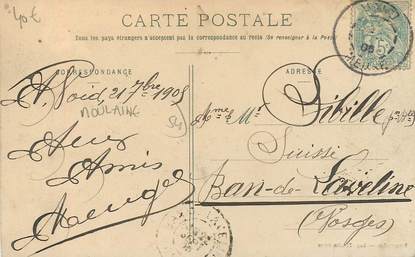 40€
CARTE POSTALE
Tous les pays étrangers n'acceptent pas la correspondance au recto (Se renseigner à la Poste)
CORRESPONDANCE
ADRESSE
St Noid, 21 7bre 1905
MOULAINE
54
Aux
Amis
Menges
Mme & Mr Sibille
Suisse
Ban-de-Laveline
(Vosges)